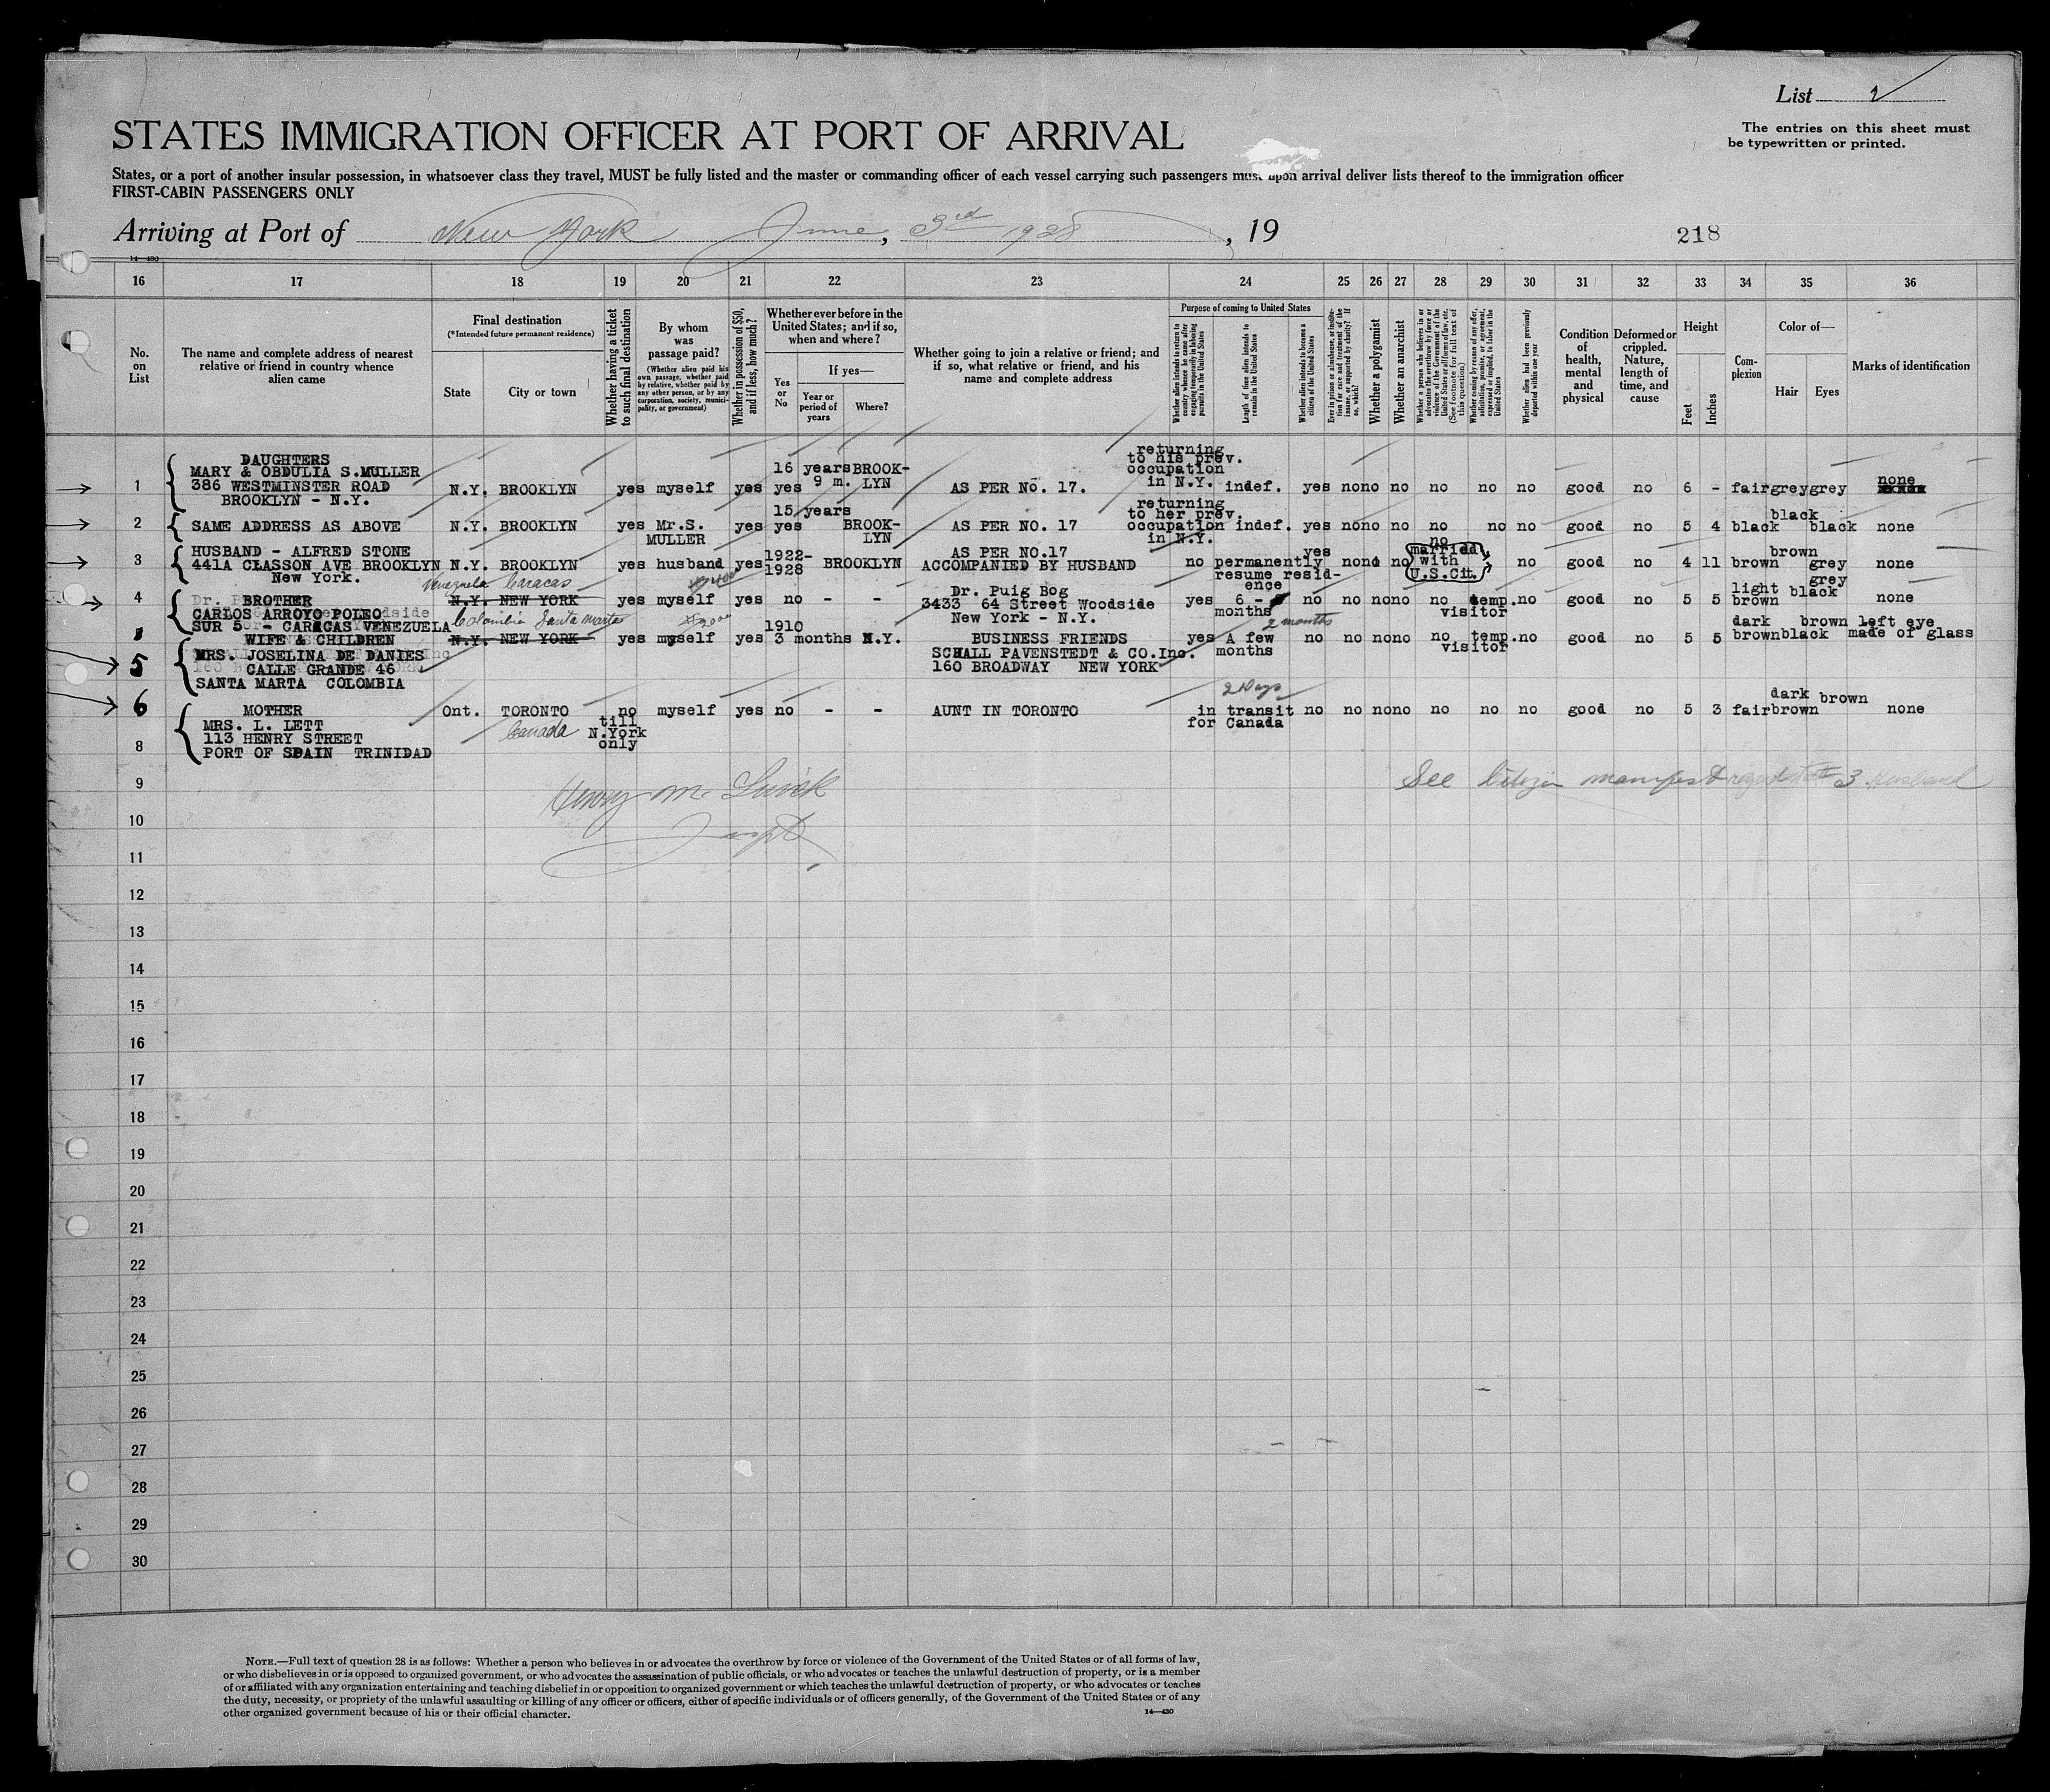 List 2
The entries on this sheet must
be typewritten or printed.
STATES IMMIGRATION OFFICER AT PORT OF ARRIVAL
States, or a port of another insular possession, in whatsoever class they travel, MUST be fully listed and the master or commanding officer of each vessel carrying such passengers must upon arrival deliver lists thereof to the immigration officer
FIRST-CABIN PASSENGERS ONLY
Arriving at Port of New York June, 3rd 1928, 19
218
14—430
16 17 18 19 20 21 22 23 24 25 26 27 28 29 30 31 32 33 34 35 36
No. on List
The name and complete address of nearest relative or friend in country whence alien came
Final destination
(*Intended future permanent residence)
State
City or town
Whether having a ticket to such final destination
By whom was passage paid?
(Whether alien paid his own passage, whether paid by relative, whether paid by any other person, or by any corporation, society, municipality, or government)
Whether in possession of $50, and if less, how much?
Whether ever before in the United States; and if so, when and where?
Yes or No
If yes—
Year or period of years
Where?
Whether going to join a relative or friend; and if so, what relative or friend, and his name and complete address
Purpose of coming to United States
Whether alien intends to return to country whence he came after engaging temporarily in laboring pursuits in the United States
Length of time alien intends to remain in the United States
Whether alien intends to become a citizen of the United States
Ever in prison or almshouse, or institution for care and treatment of the insane, or supported by charity? If so, which?
Whether a polygamist
Whether an anarchist
Whether a person who believes in or advocates the overthrow by force or violence of the Government of the United States or all forms of law, etc. (See footnote for full text of this question)
Whether coming by reason of any offer, solicitation, promise, or agreement, expressed or implied, to labor in the United States
Whether alien had been previously deported within one year
Condition of health, mental and physical
Deformed or crippled. Nature, length of time, and cause
Height
Feet
Inches
Complexion
Color of—
Hair
Eyes
Marks of identification
1 DAUGHTERS
MARY & OBDULIA S.MULLER
386 WESTMINSTER ROAD
BROOKLYN - N.Y.
N.Y. BROOKLYN yes myself yes yes 16 years 9 m. BROOKLYN AS PER No. 17. returning to his prev. occupation in N.Y. indef. yes no no no no no no good no 6 - fair grey grey none
2 SAME ADDRESS AS ABOVE N.Y. BROOKLYN yes Mr.S. MULLER yes yes 15 years BROOKLYN AS PER NO. 17 returning to her prev. occupation in N.Y. indef. yes no no no no no no good no 5 4 black black black none
3 HUSBAND - ALFRED STONE
441A CLASSON AVE BROOKLYN
New York.
N.Y. BROOKLYN yes husband yes 1922-1928 BROOKLYN AS PER NO.17 ACCOMPANIED BY HUSBAND no permanently resume residence yes no no no no married with U.S.Cit. no good no 4 11 brown brown grey none
4 BROTHER
CARLOS ARROYO POLEO
SUR 5 - CARACAS VENEZUELA
Venezuela Caracas
N.Y. NEW YORK yes myself yes no - - Dr. Puig Bog
3433 64 Street Woodside
New York - N.Y.
yes 6 - months no no no no no temp. visitor no good no 5 5 light brown black grey none
5 WIFE & CHILDREN
MRS. JOSELINA DE DANIES
CALLE GRANDE 46
SANTA MARTA COLOMBIA
Colombia Santa Marta
N.Y. NEW YORK yes myself yes 1910 3 months N.Y. BUSINESS FRIENDS
SCHALL PAVENSTEDT & CO.Inc.
160 BROADWAY NEW YORK
yes A few months 2 months no no no no no temp. visitor no good no 5 5 dark brown black brown left eye made of glass
6 MOTHER
MRS. L. LETT
113 HENRY STREET
PORT OF SPAIN TRINIDAD
Ont. TORONTO Canada no till N.York only myself yes no - - AUNT IN TORONTO 2 Days in transit for Canada no no no no no no no good no 5 3 fair dark brown brown none
8
9
See Citizen manifest regards # 3 Husband
10
11
12
13
14
15
16
17
18
19
20
21
22
23
24
25
26
27
28
29
30
NOTE.—Full text of question 28 is as follows: Whether a person who believes in or advocates the overthrow by force or violence of the Government of the United States or of all forms of law,
or who disbelieves in or is opposed to organized government, or who advocates the assassination of public officials, or who advocates or teaches the unlawful destruction of property, or is a member
of or affiliated with any organization entertaining and teaching disbelief in or opposition to organized government or which teaches the unlawful destruction of property, or who advocates or teaches
the duty, necessity, or propriety of the unlawful assaulting or killing of any officer or officers, either of specific individuals or of officers generally, of the Government of the United States or of any
other organized government because of his or their official character.
14—430